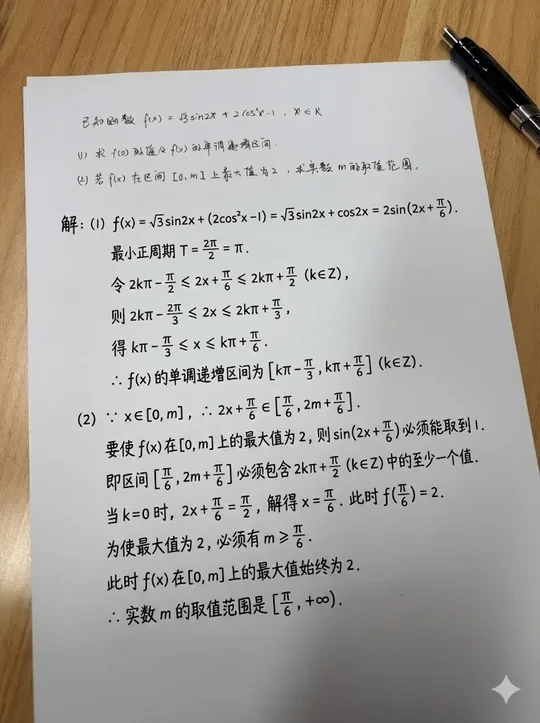 已知函数 f(x) = √3 sin2x + 2cos²x-1 , x∈R
(1) 求 f(0) 的值及 f(x) 的单调递增区间.
(2) 若 f(x) 在区间 [0, m] 上最大值为2 , 求实数 m 的取值范围.
解: (1) f(x) = √3 sin2x + (2cos²x-1) = √3 sin2x + cos2x = 2sin(2x+π/6).
最小正周期 T = 2π/2 = π.
令 2kπ - π/2 ≤ 2x + π/6 ≤ 2kπ + π/2 (k∈Z),
则 2kπ - 2π/3 ≤ 2x ≤ 2kπ + π/3,
得 kπ - π/3 ≤ x ≤ kπ + π/6.
∴ f(x) 的单调递增区间为 [kπ - π/3, kπ + π/6] (k∈Z).
(2) ∵ x∈[0, m], ∴ 2x + π/6 ∈ [π/6, 2m + π/6].
要使 f(x) 在 [0, m] 上的最大值为 2, 则 sin(2x + π/6) 必须能取到 1.
即区间 [π/6, 2m + π/6] 必须包含 2kπ + π/2 (k∈Z) 中的至少一个值.
当 k=0 时, 2x + π/6 = π/2, 解得 x = π/6. 此时 f(π/6) = 2.
为使最大值为 2, 必须有 m ≥ π/6.
此时 f(x) 在 [0, m] 上的最大值始终为 2.
∴ 实数 m 的取值范围是 [π/6, +∞).